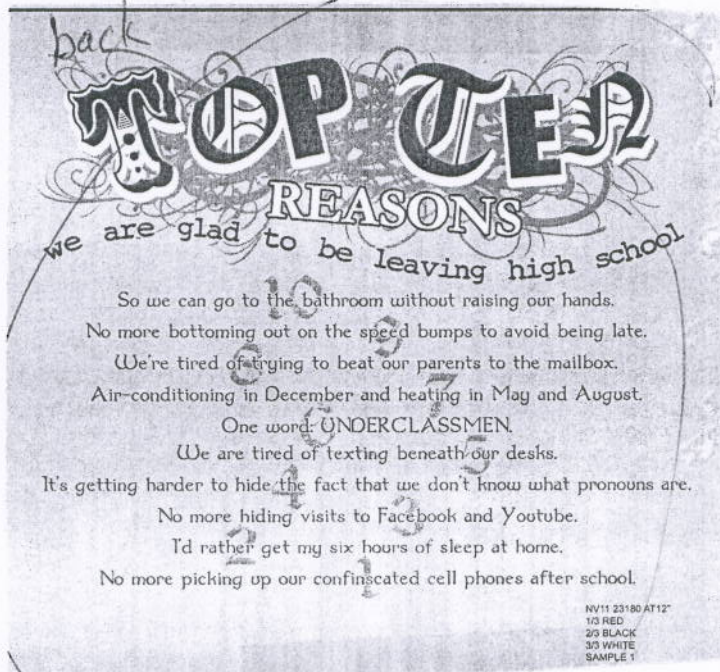 back
TOP TEN
REASONS
we are glad to be leaving high school
10
So we can go to the bathroom without raising our hands.
9
No more bottoming out on the speed bumps to avoid being late.
8
We're tired of trying to beat our parents to the mailbox.
7
Air-conditioning in December and heating in May and August.
6
One word: UNDERCLASSMEN.
5
We are tired of texting beneath our desks.
4
It's getting harder to hide the fact that we don't know what pronouns are.
3
No more hiding visits to Facebook and Youtube.
2
I'd rather get my six hours of sleep at home.
1
No more picking up our confinscated cell phones after school.
NV11 23180 AT12"
1/3 RED
2/3 BLACK
3/3 WHITE
SAMPLE 1